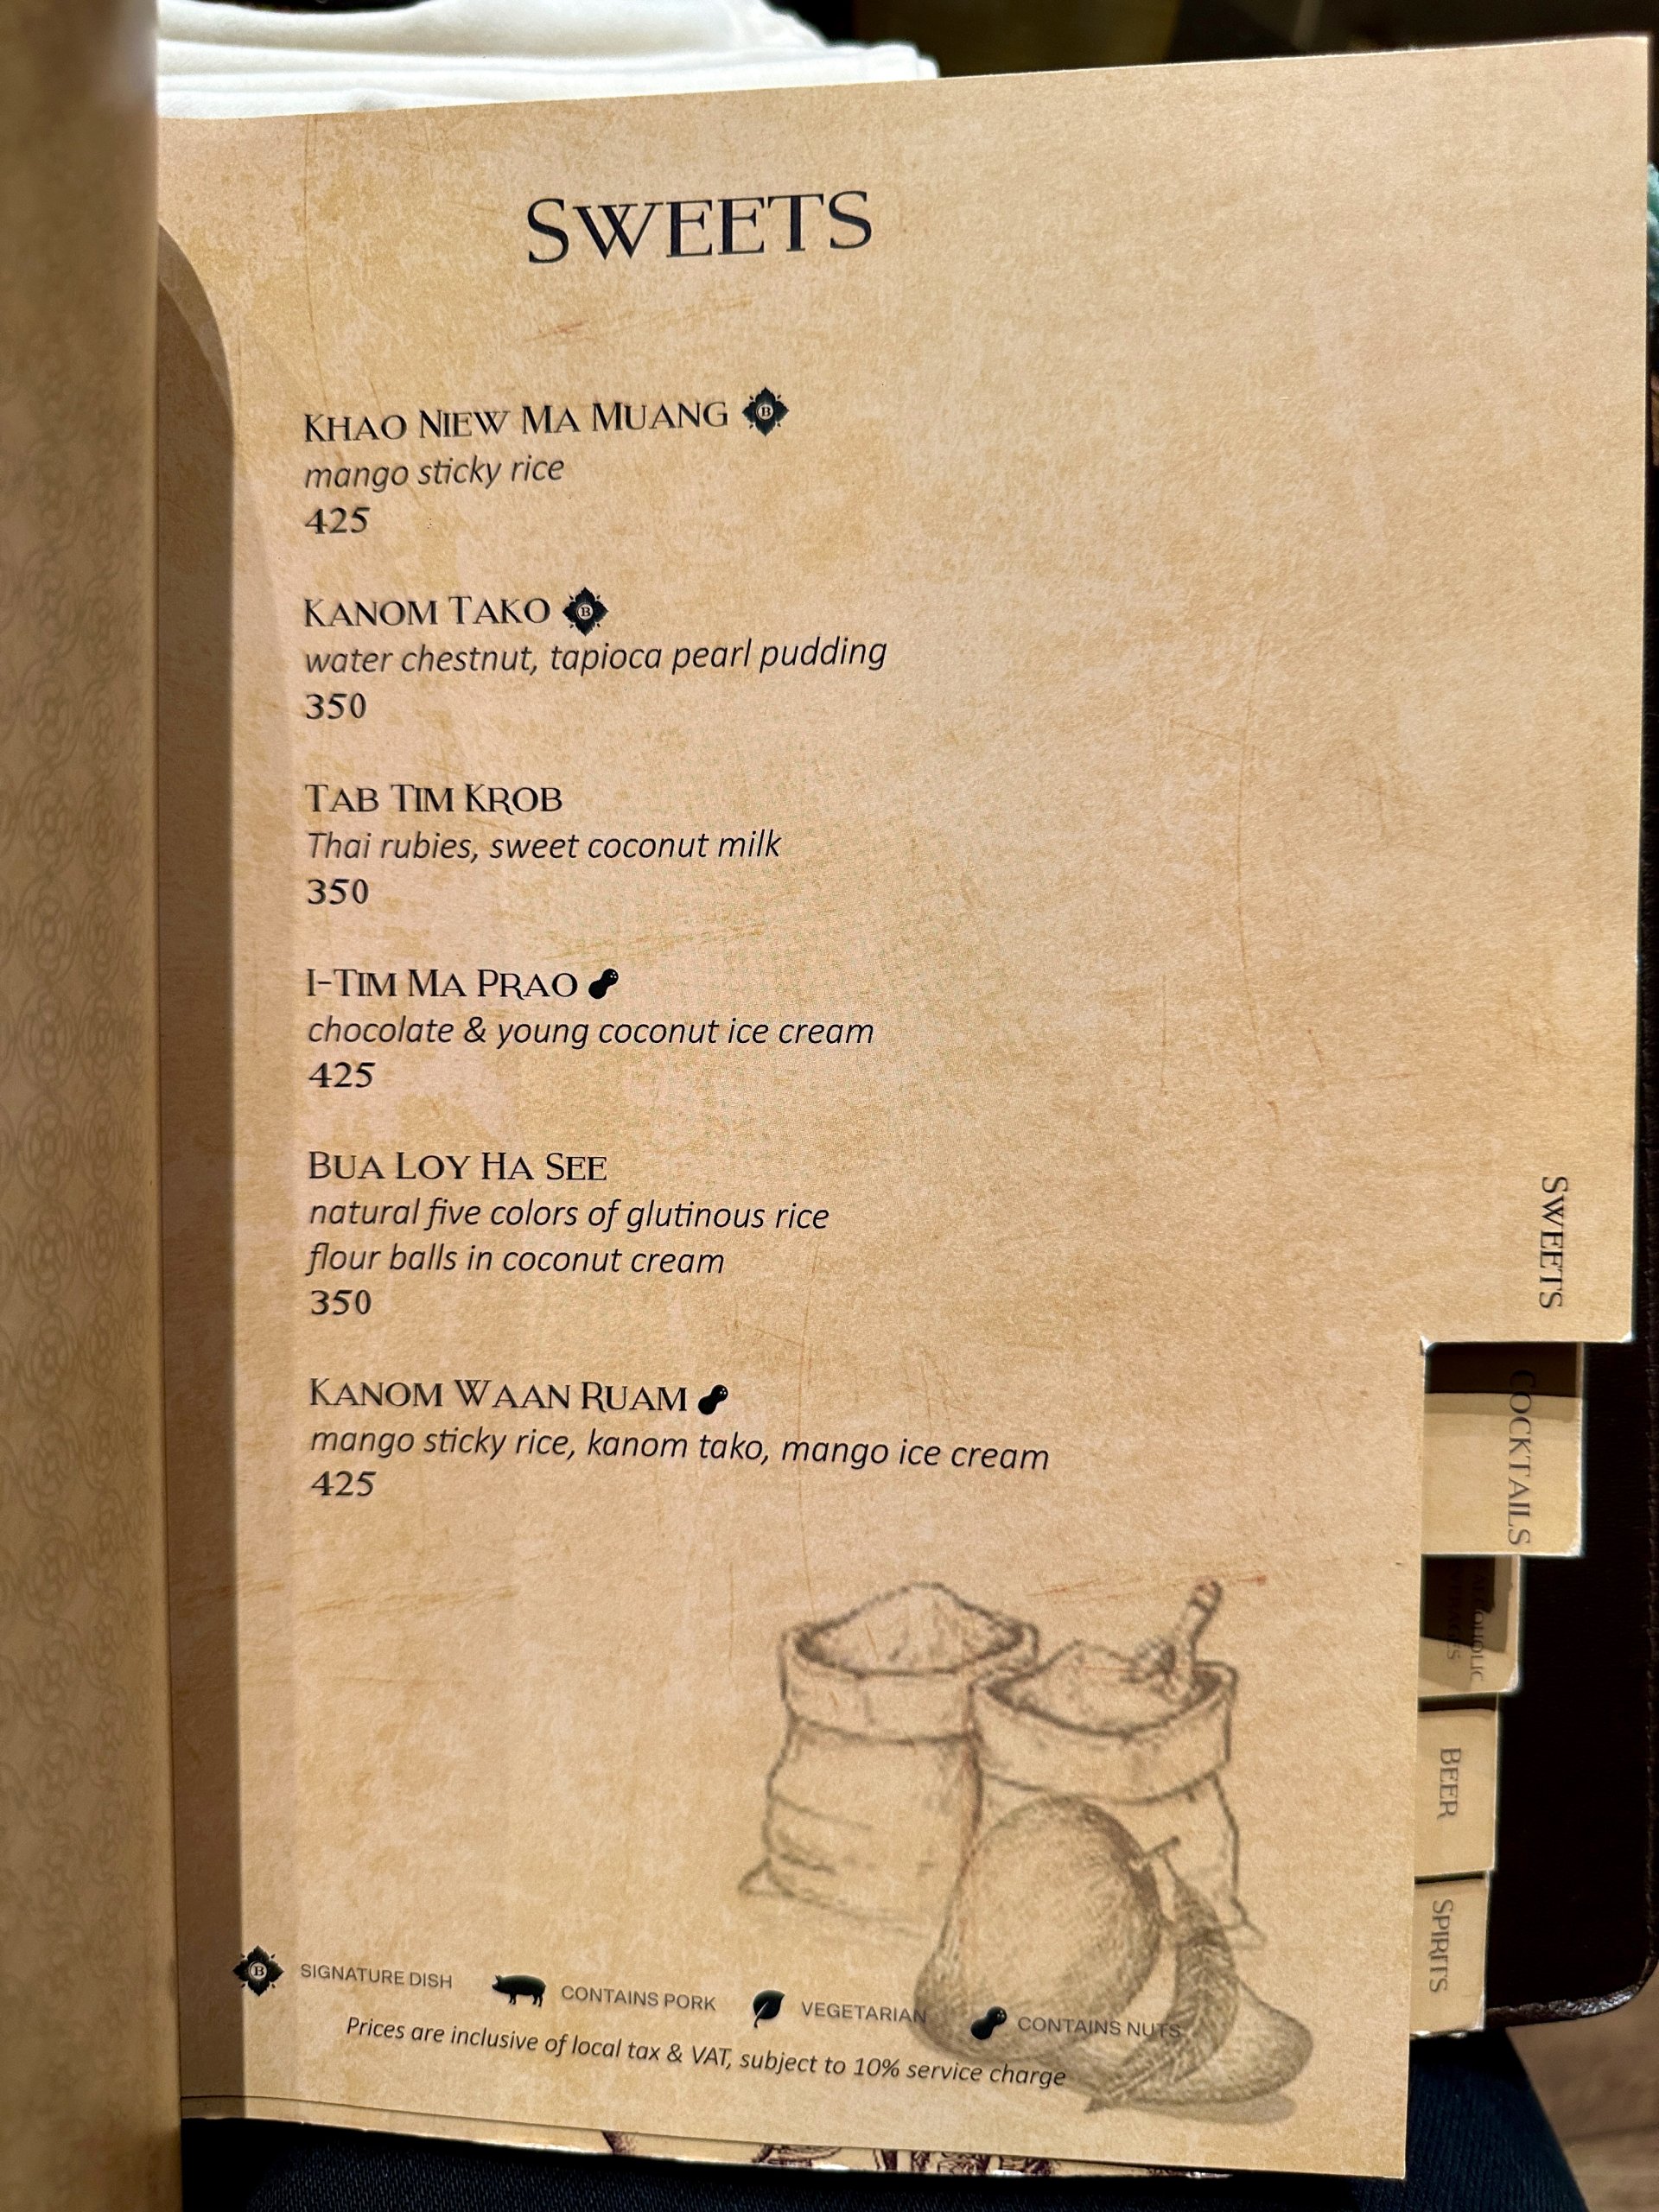 SWEETS
KHAO NIEW MA MUANG B
mango sticky rice
425
KANOM TAKO B
water chestnut, tapioca pearl pudding
350
TAB TIM KROB
Thai rubies, sweet coconut milk
350
I-TIM MA PRAO
chocolate & young coconut ice cream
425
BUA LOY HA SEE
natural five colors of glutinous rice
flour balls in coconut cream
350
KANOM WAAN RUAM
mango sticky rice, kanom tako, mango ice cream
425
B SIGNATURE DISH CONTAINS PORK VEGETARIAN CONTAINS NUTS
Prices are inclusive of local tax & VAT, subject to 10% service charge
SWEETS
COCKTAILS
BEER
SPIRITS